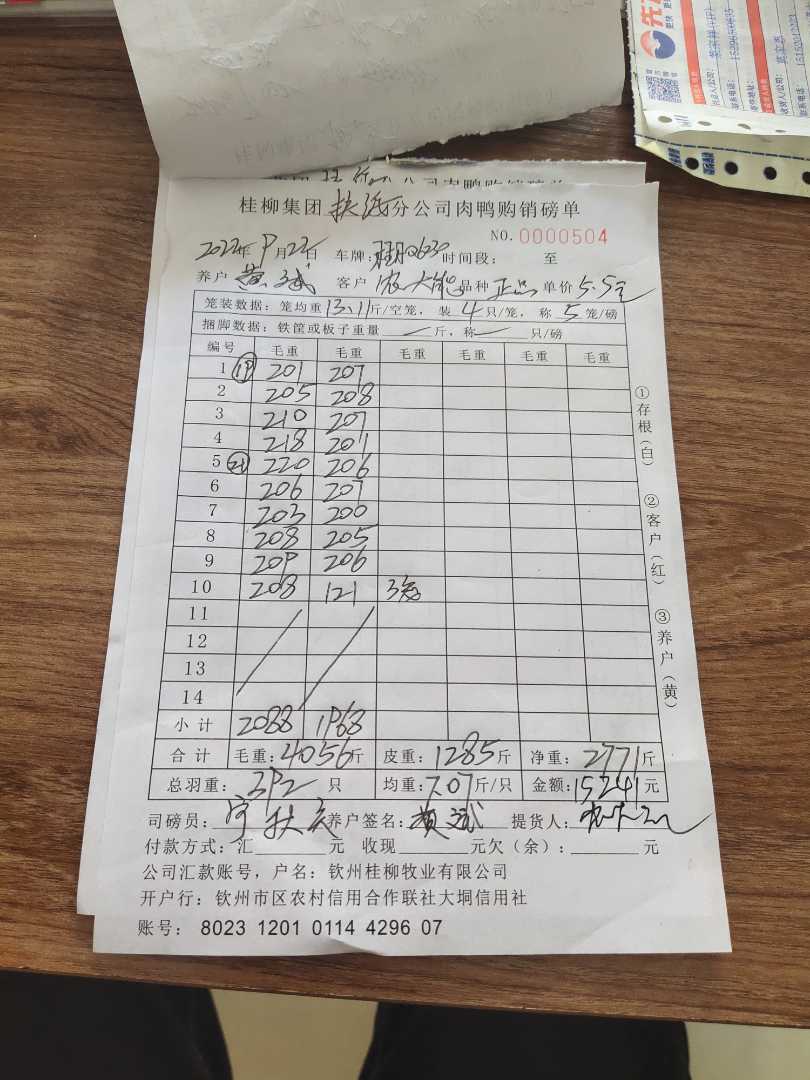 桂柳集团 扶绥 分公司肉鸭购销磅单
NO. 0000504
2022年9月22日 车牌: 时间段: 至
养户 黄斌 客户 农大能 品种 正品 单价 5.5元
笼装数据: 笼均重 13.11 斤/空笼, 装 4 只/笼, 称 5 笼/磅
捆脚数据: 铁筐或板子重量 — 斤, 称 — 只/磅
编号 毛重 毛重 毛重 毛重 毛重 毛重
1 ⑲ 201 207
2 205 208
3 210 207
4 218 201
5 ㉑ 220 206
6 206 207
7 203 200
8 208 205
9 209 206
10 208 121 3笼
11
12
13
14
小计 2088 1968
合计 毛重: 4056斤 皮重: 1285斤 净重: 2771斤
总羽重: 392 只 均重: 7.07斤/只 金额: 15241元
司磅员: 养户签名: 黄斌 提货人:
付款方式: 汇 元 收现 元欠(余): 元
公司汇款账号, 户名: 钦州桂柳牧业有限公司
开户行: 钦州市区农村信用合作联社大垌信用社
账号: 8023 1201 0114 4296 07
①存根(白)
②客户(红)
③养户(黄)